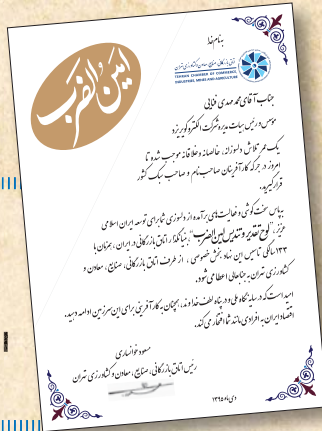 بنام خدا
امین الضرب
اتاق بازرگانی، صنایع، معادن و کشاورزی تهران
TEHRAN CHAMBER OF COMMERCE,
INDUSTRIES, MINES AND AGRICULTURE
جناب آقای محمدمهدی فنایی
موسس و رئیس هیات مدیره شرکت الکتروکویر یزد
یک عمر تلاش دلسوزانه، خالصانه و خلاقانه موجب شده تا
امروز در جرگه کارآفرینان صاحب نام و صاحب سبک کشور
قرار گیرید.
بپاس سخت کوشی و فعالیت های برآمده از دلسوزی شما برای توسعه ایران اسلامی
عزیز، "لوح تقدیر و تندیس امین الضرب" بنیانگذار اتاق بازرگانی در ایران، همزمان با
۱۳۳ سالگی تاسیس این نهاد بخش خصوصی، از طرف اتاق بازرگانی، صنایع، معادن و
کشاورزی تهران به جنابعالی اعطا می شود.
امید است که در سایه نگاه ملی و در پناه لطف خداوند، همچنان به کارآفرینی برای این سرزمین ادامه دهید.
اقتصاد ایران به افرادی مانند شما افتخار می کند.
مسعود خوانساری
رئیس اتاق بازرگانی، صنایع، معادن و کشاورزی تهران
دی ماه ۱۳۹۵